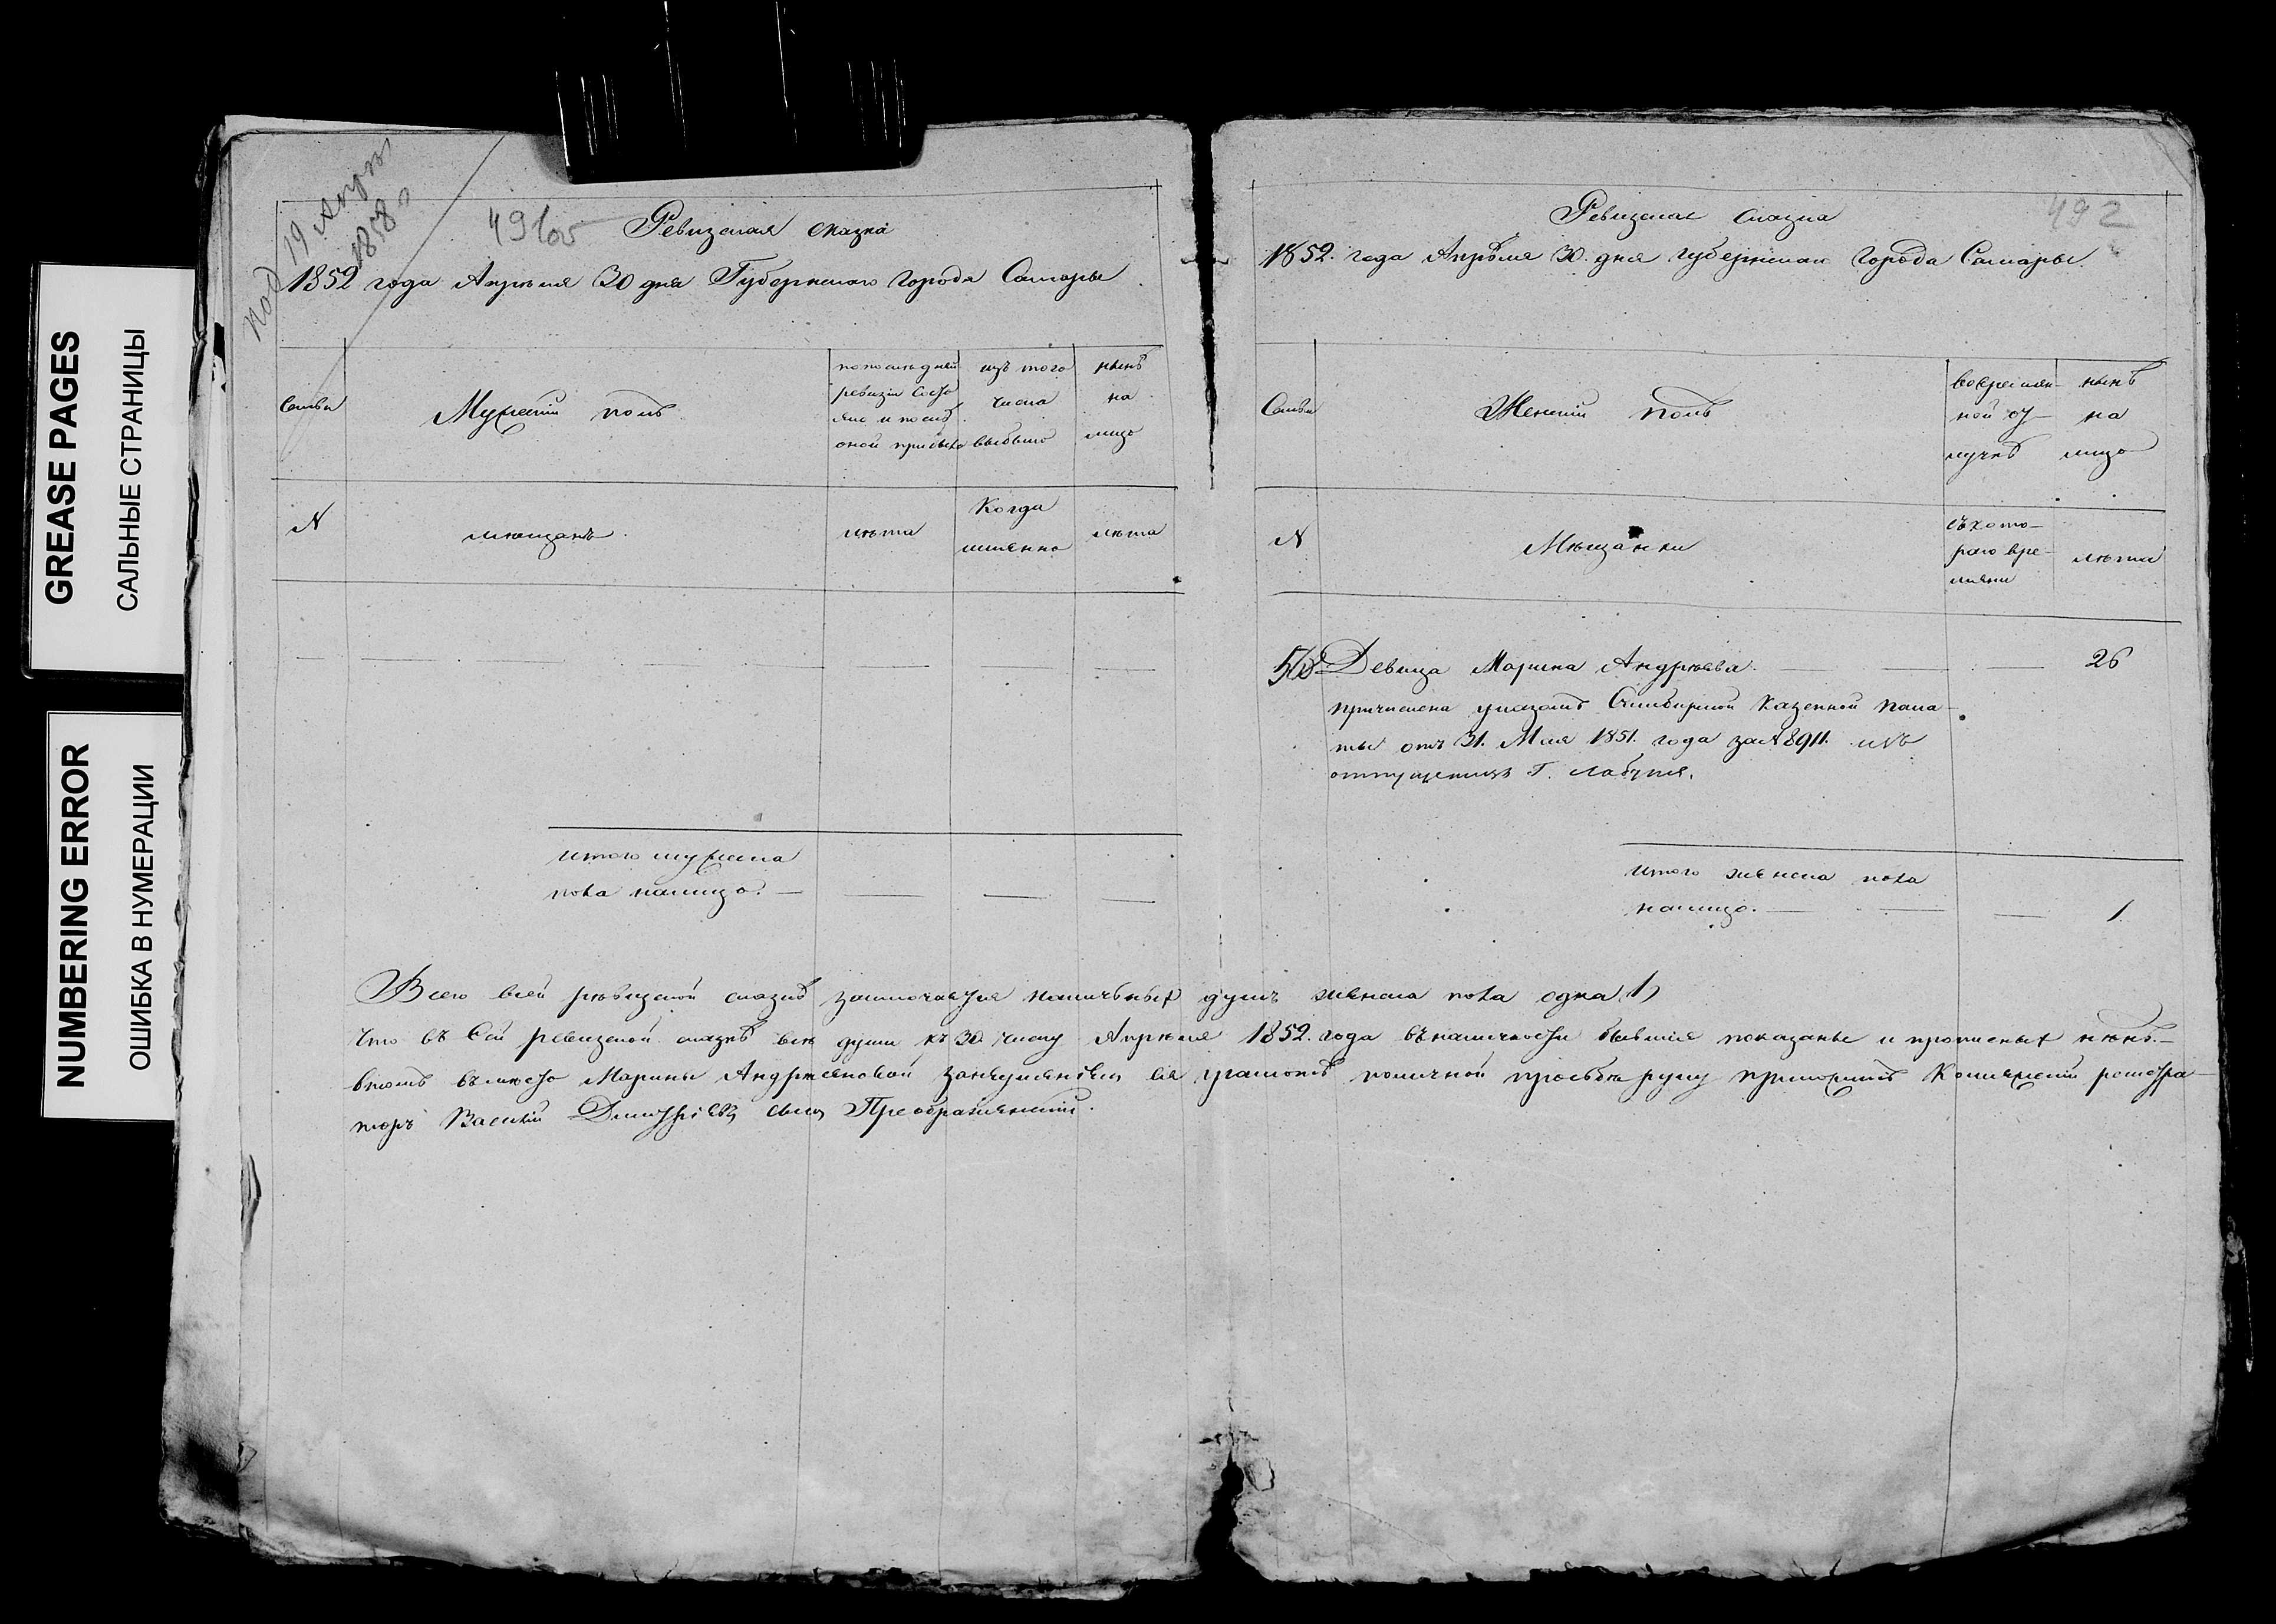 GREASE PAGES
САЛЬНЫЕ СТРАНИЦЫ
NUMBERING ERROR
ОШИБКА В НУМЕРАЦИИ
под 19
1858
491об
Ревизская сказка
1852 года Апрѣля 30 дня Губернскаго города Самары
Семьи
Мужескій полъ
по послѣдней
ревизіи состо
яло и послѣ
оной прибыло
изъ того
числа
выбыло
нынѣ
на
лицо
N
мѣщанъ
лѣта
Когда
именно
лѣта
итого мужеска
пола налицо
492
Ревизская сказка
1852. года Апрѣля 30. дня губернскаго города Самары.
Семьи
Женскій полъ
во времян-
ной от-
лучкѣ
нынѣ
на
лицо
N
Мѣщанки
съ кото-
раго вре-
мяни
лѣта
Девица Марина Андрѣева 26
причислена указомъ Симбирской Казенной пала-
ты отъ 31. Мая 1851. года за N 8911. изъ
отпущенницъ Г.
итого женска пола
налицо. 1
Всего въ сей ревизской сказкѣ заключается наличныхъ душъ женска пола одна (1)
Что въ Сей ревизской сказкѣ всѣ души къ 30. числу Апрѣля 1852. года въ наличности бывшія показаны и прописныхъ нѣтъ.
въ томъ вмѣсто Марины Андрѣяновой за неумѣніемъ ея грамотѣ по личной прозьбѣ руку приложилъ Колежскій регистра-
торъ Василій Дмитріевъ сынъ Преображенскій.